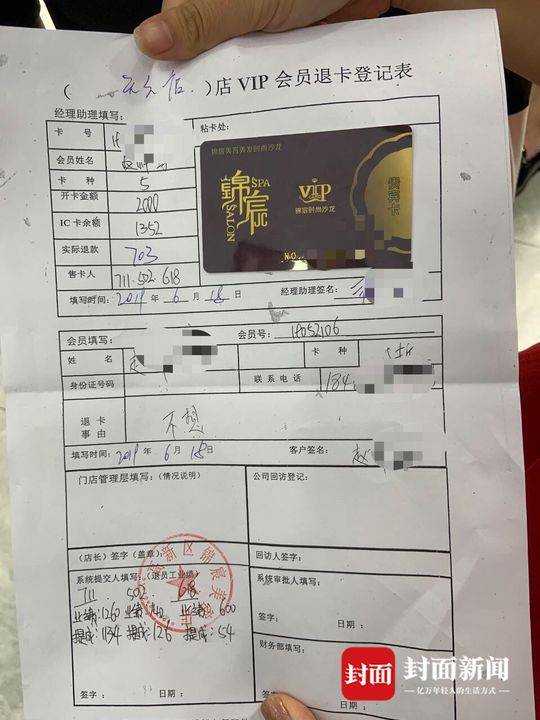 ( 店 ) 店 VIP 会员退卡登记表
经理助理填写:
粘卡处:
卡 号
会员姓名
卡 种 5
开卡金额 2000
IC 卡余额 1352
实际退款 703
售卡人 711.502.618
填写时间: 2019 年 6 月 18 日
经理助理签名:
锦宸美容美发时尚沙龙
锦宸
SPA
SALON
VIP
锦宸时尚沙龙
贵宾卡
NO.
会员填写:
会员号: 1f052106
姓 名 赵
卡 种
身份证号码
联 系 电 话 134
退 卡
事由
不想
填写时间: 2019 年 6 月 18 日
客户签名: 赵
门店管理层填写:(情况说明)
公司回访登记:
(店长)签字(盖章):
回访人签字:
系统提交人填写:(退员工业绩)
711 502 618
业绩:1260 业绩: 业绩:600
提成:134 提成:126 提成:54
签字: 日期:
系统审批人填写:
签字: 日期:
财务部填写:
签字: 日期:
新区锦宸美
封面
封面新闻
亿万年轻人的生活方式